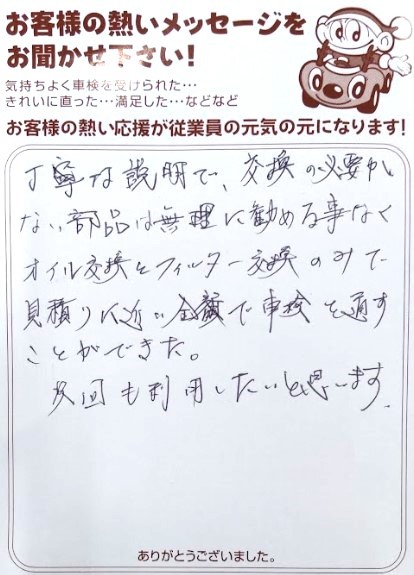 お客様の熱いメッセージを
お聞かせ下さい！
気持ちよく車検を受けられた…
きれいに直った…満足した…などなど
お客様の熱い応援が従業員の元気の元になります！
丁寧な説明で、交換の必要が
ない部品は無理に勧める事なく
オイル交換とフィルター交換のみで
見積りに近い金額で車検を通す
ことができた。
次回も利用したいと思います。
ありがとうございました。